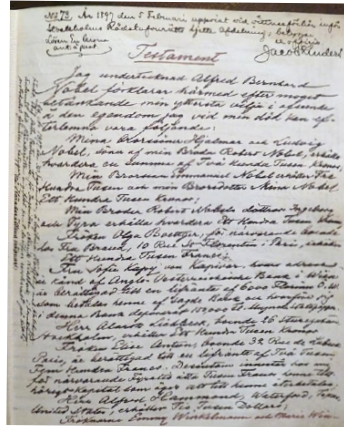 No 73. År 1897 den 5 Februari uppvist vid vittnesförhör inför
Stockholms Rådstufvurätts sjette afdelning; betygar
Jacob
Testament
Jag undertecknad Alfred Bernhard
Nobel förklarar härmed efter moget
betänkande min yttersta vilja i afseende
å den egendom jag vid min död kan ef-
terlemna vara följande:
Mina Brorsöner Hjalmar och Ludvig
Nobel, söner af min Broder Robert Nobel, erhålla
hvardera en summa af Två Hundra Tusen Kronor;
Min Brorson Emmanuel Nobel erhåller Tre
Hundra Tusen och min Brorsdotter Mina Nobel
Ett Hundra Tusen Kronor;
Min Broder Robert Nobels döttrar Ingeborg
och Tyra erhålla hvardera Ett Hundra Tusen Kronor
Fröken Olga Boettger, för närvarande boende
hos Fru Brand, 10 Rue St Florentin i Paris, erhåller
Ett Hundra Tusen Francs;
Fru Sofie Kapy von Kapivar, hvars adress
är känd af Anglo-Oesterreichische Bank i Wien
är berättigad till en lifränta af 6000 Florins Ö.W.
som betalas henne af sagde Bank och hvarför jag
i denna Bank deponerat 150,000 Fl. i Ungerska Statspapper
Herr Alarik Liedbeck, boende 26 Sturegatan
Stockholm, erhåller Ett Hundra Tusen Kronor
Fröken Elise Antun, boende 32 Rue de Lubeck
Paris, är berättigad till en lifränta af Två Tusen
Fem Hundra Francs. Dessutom innestår hos mig
för närvarande Fyratio åtta Tusen Francs henne till-
hörigt kapital som äger att till henne återbetalas;
Herr Alfred Hammond, Waterford, Texas,
United States, erhåller Tio Tusen Dollars;
Fröknarna Emmy Winkelmann och Marie Win-